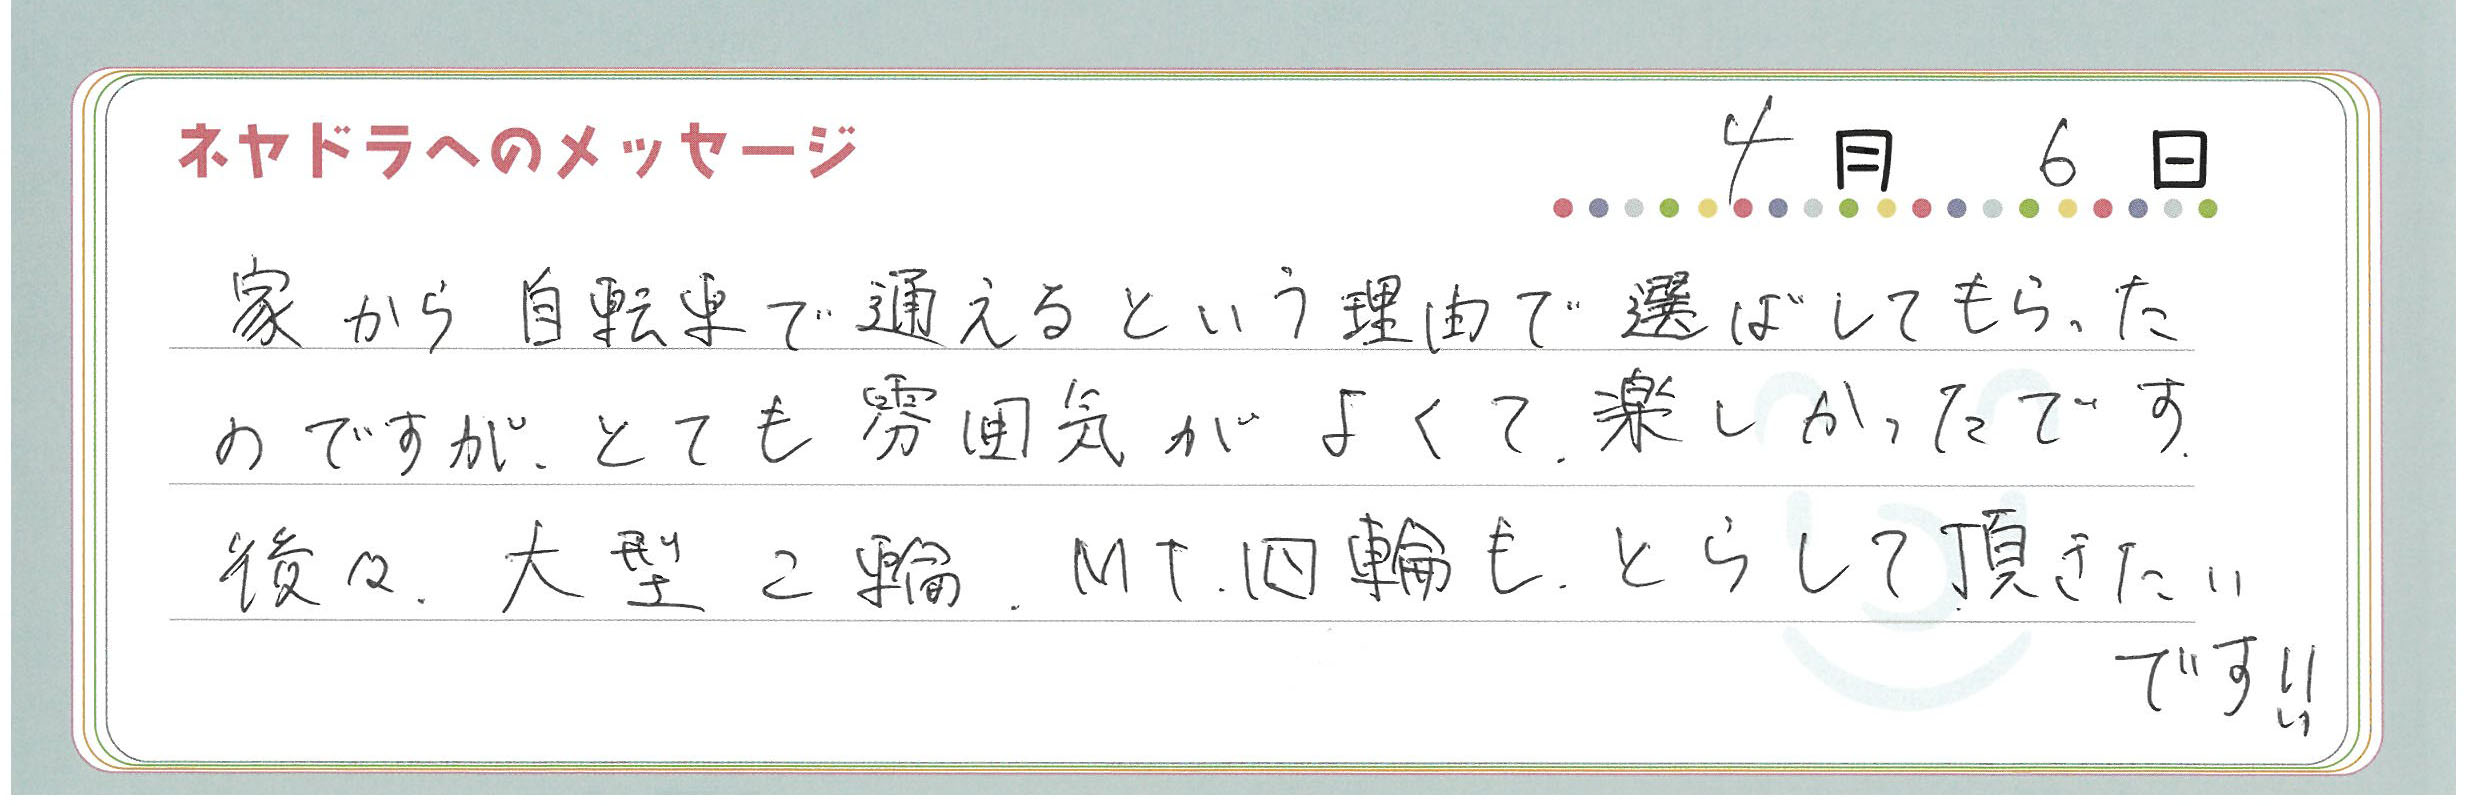 ネヤドラへのメッセージ
4月 6日
家から自転車で通えるという理由で選ばしてもらった
のですが、とても雰囲気がよくて、楽しかったです。
後々、大型二輪、MT、四輪も、とらして頂きたい
です!!